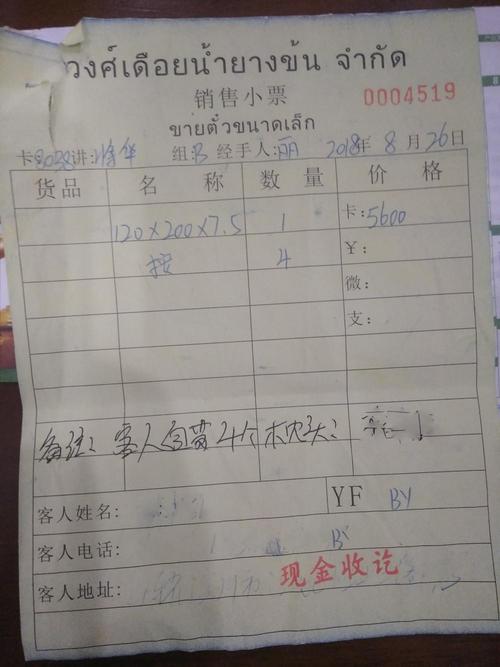 วงศ์เดือยน้ำยางข้น จำกัด
销售小票
0004519
ขายตั๋วขนาดเล็ก
卡:8038 讲: 华 组:B 经手人:丽 2018年 8 月 26日
货品 名 称 数 量 价 格
120×200×7.5 1 卡:5600
4 ¥:
微:
支:
备注: 客人自费4个枕头:
客人姓名: YF BY
客人电话: BY
客人地址:
现金收讫